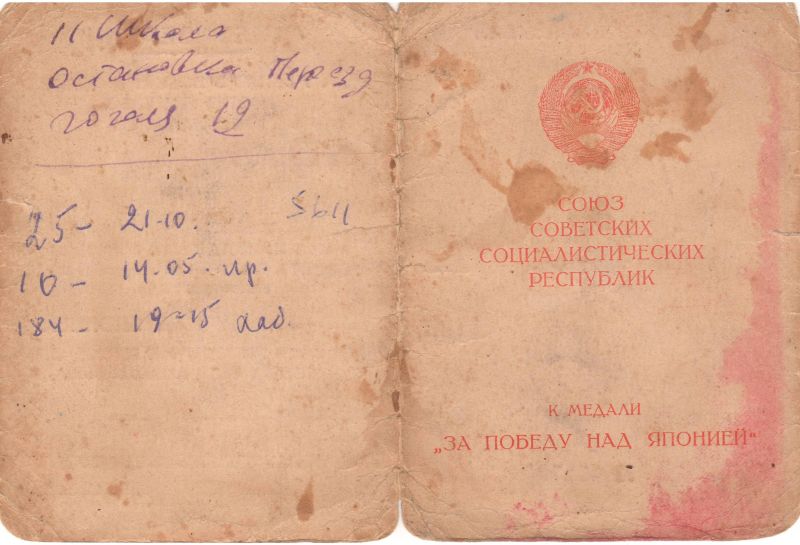 11 Школа
остановка Переезд
гоголя 12
25 - 21-10.
10 - 14-05. пр.
184 - 19-15
СОЮЗ
СОВЕТСКИХ
СОЦИАЛИСТИЧЕСКИХ
РЕСПУБЛИК
К МЕДАЛИ
„ЗА ПОБЕДУ НАД ЯПОНИЕЙ“